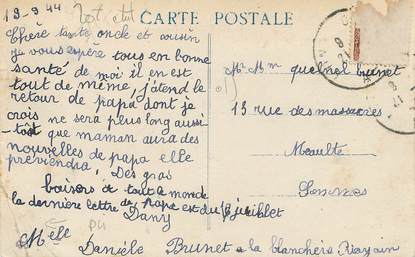 19-9-44
CARTE POSTALE
Chère tante oncle et cousin
Je vous espère tous en bonne
santé de moi il en est
tout de même, j'attend le
retour de papa dont je
crois ne sera plus long aussi
-tôt que maman aura des
nouvelles de papa elle
préviendra. Des gros
baisers à tout le monde
la dernière lettre de papa est du 6 juillet
Dany
Mr Mm quesnel brunet
13 rue des massacres
Meaulte
Sommes
Melle Danièle Brunet à la blanchère